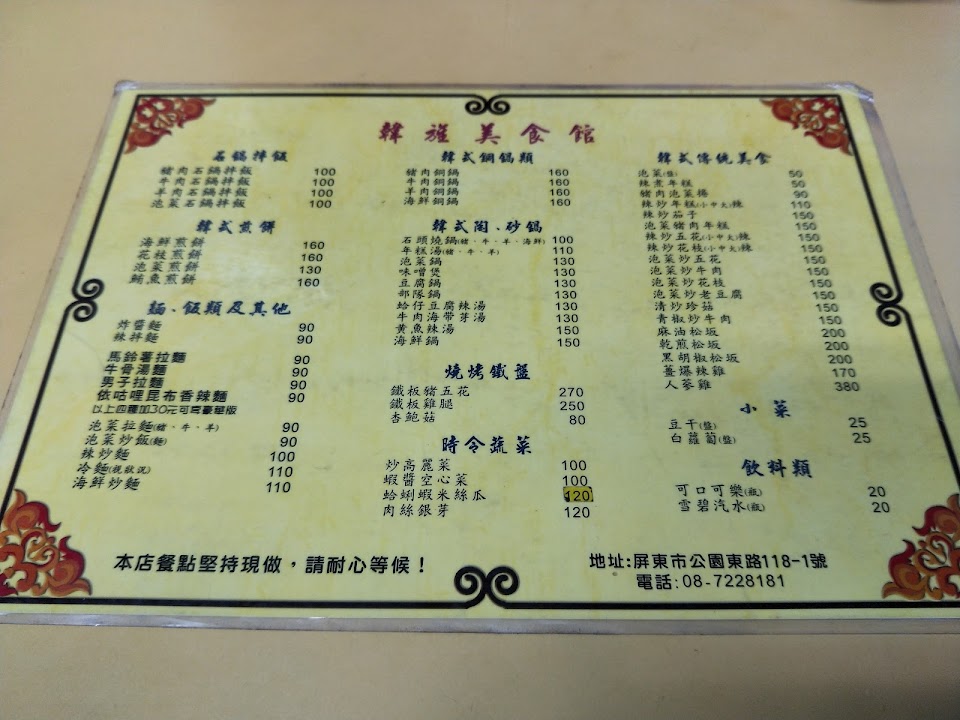 韓旌美食館
石鍋拌飯
豬肉石鍋拌飯 100
牛肉石鍋拌飯 100
羊肉石鍋拌飯 100
泡菜石鍋拌飯 100
韓式煎餅
海鮮煎餅 160
花枝煎餅 160
泡菜煎餅 130
鮪魚煎餅 160
麵、飯類及其他
炸醬麵 90
辣拌麵 90
馬鈴薯拉麵 90
牛骨湯麵 90
男子拉麵 90
依咕哩昆布香辣麵 90
以上四種加30元可享豪華版
泡菜拉麵(豬、牛、羊) 90
泡菜炒飯(麵) 90
辣炒麵 100
冷麵(視狀況) 110
海鮮炒麵 110
韓式銅鍋類
豬肉銅鍋 160
牛肉銅鍋 160
羊肉銅鍋 160
海鮮銅鍋 160
韓式陶、砂鍋
石頭燒鍋(豬、牛、羊、海鮮) 100
年糕湯(豬、牛、羊) 110
泡菜鍋 130
味噌煲 130
豆腐鍋 130
部隊鍋 130
蛤仔豆腐辣湯 130
牛肉海帶芽湯 130
黃魚辣湯 150
海鮮鍋 150
燒烤鐵盤
鐵板豬五花 270
鐵板雞腿 250
杏鮑菇 80
時令蔬菜
炒高麗菜 100
蝦醬空心菜 100
蛤蜊蝦米絲瓜 120
肉絲銀芽 120
韓式傳統美食
泡菜(盤) 50
辣煮年糕 50
豬肉泡菜捲 90
辣炒年糕(小中大)辣 110
辣炒茄子 150
泡菜豬肉年糕 150
辣炒五花(小中大)辣 150
辣炒花枝(小中大)辣 150
泡菜炒五花 150
泡菜炒牛肉 150
泡菜炒花枝 150
泡菜炒老豆腐 150
清炒珍菇 150
青椒炒牛肉 150
麻油松坂 200
乾煎松坂 200
黑胡椒松坂 200
薑爆辣雞 170
人蔘雞 380
小菜
豆干(盤) 25
白蘿蔔(盤) 25
飲料類
可口可樂(瓶) 20
雪碧汽水(瓶) 20
本店餐點堅持現做，請耐心等候！
地址:屏東市公園東路118-1號
電話:08-7228181